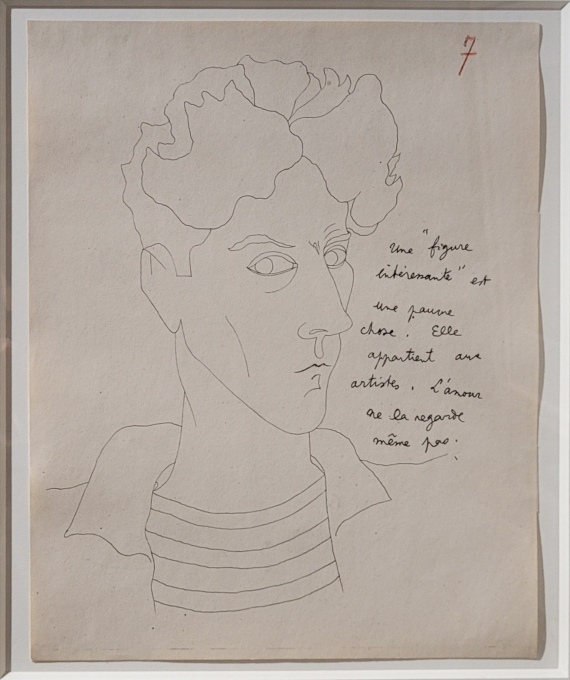 7
une "figure
intéressante" est
une pauvre
chose. Elle
appartient aux
artistes. L'amour
ne la regarde
même pas.